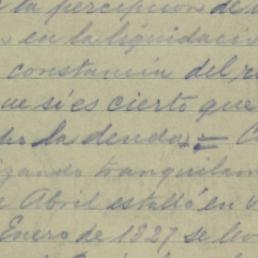 la percepcion de
en la liquidacio
constancia del r
que si es cierto que
la deuda = C
izando tranquilam
e Abril estalló en V
Enero de 1827 se lev